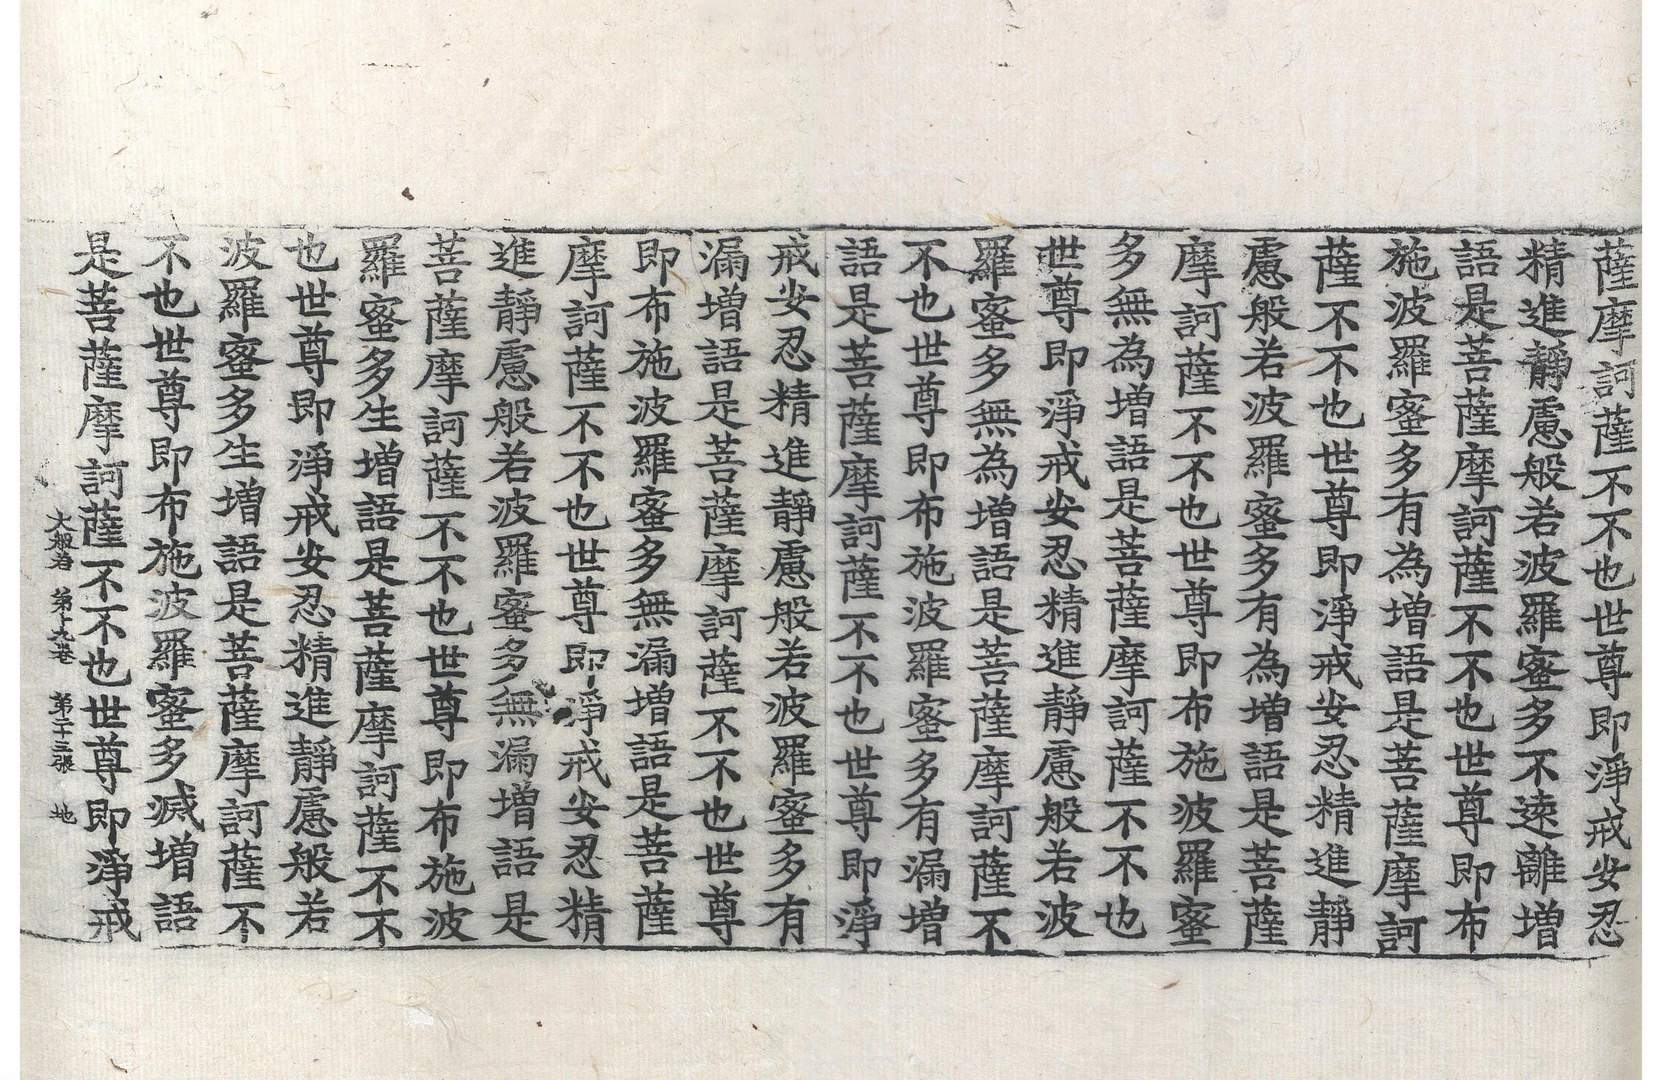 薩摩訶薩不不也世尊即淨戒安忍
精進靜慮般若波羅蜜多不遠離增
語是菩薩摩訶薩不不也世尊即布
施波羅蜜多有為增語是菩薩摩訶
薩不不也世尊即淨戒安忍精進靜
慮般若波羅蜜多有為增語是菩薩
摩訶薩不不也世尊即布施波羅蜜
多無為增語是菩薩摩訶薩不不也
世尊即淨戒安忍精進靜慮般若波
羅蜜多無為增語是菩薩摩訶薩不
不也世尊即布施波羅蜜多有漏增
語是菩薩摩訶薩不不也世尊即淨
戒安忍精進靜慮般若波羅蜜多有
漏增語是菩薩摩訶薩不不也世尊
即布施波羅蜜多無漏增語是菩薩
摩訶薩不不也世尊即淨戒安忍精
進靜慮般若波羅蜜多無漏增語是
菩薩摩訶薩不不也世尊即布施波
羅蜜多生增語是菩薩摩訶薩不不
也世尊即淨戒安忍精進靜慮般若
波羅蜜多生增語是菩薩摩訶薩不
不也世尊即布施波羅蜜多滅增語
是菩薩摩訶薩不不也世尊即淨戒
大般若 第十九卷 第二十三張 地